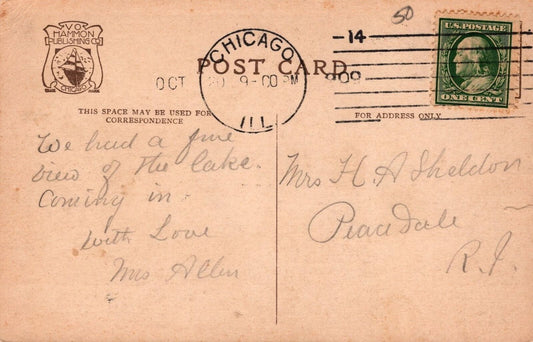 V.O.
HAMMON
PUBLISHING CO.
CHICAGO
50
CHICAGO
ILL
OCT 9-00 PM 1909
14
U.S. POSTAGE
ONE CENT
POST CARD
THIS SPACE MAY BE USED FOR
CORRESPONDENCE
FOR ADDRESS ONLY
We had a fine
view of the lake.
Coming in.
With Love
Mrs Allen
Mrs H. A Sheldon
Peacedale
R.I.